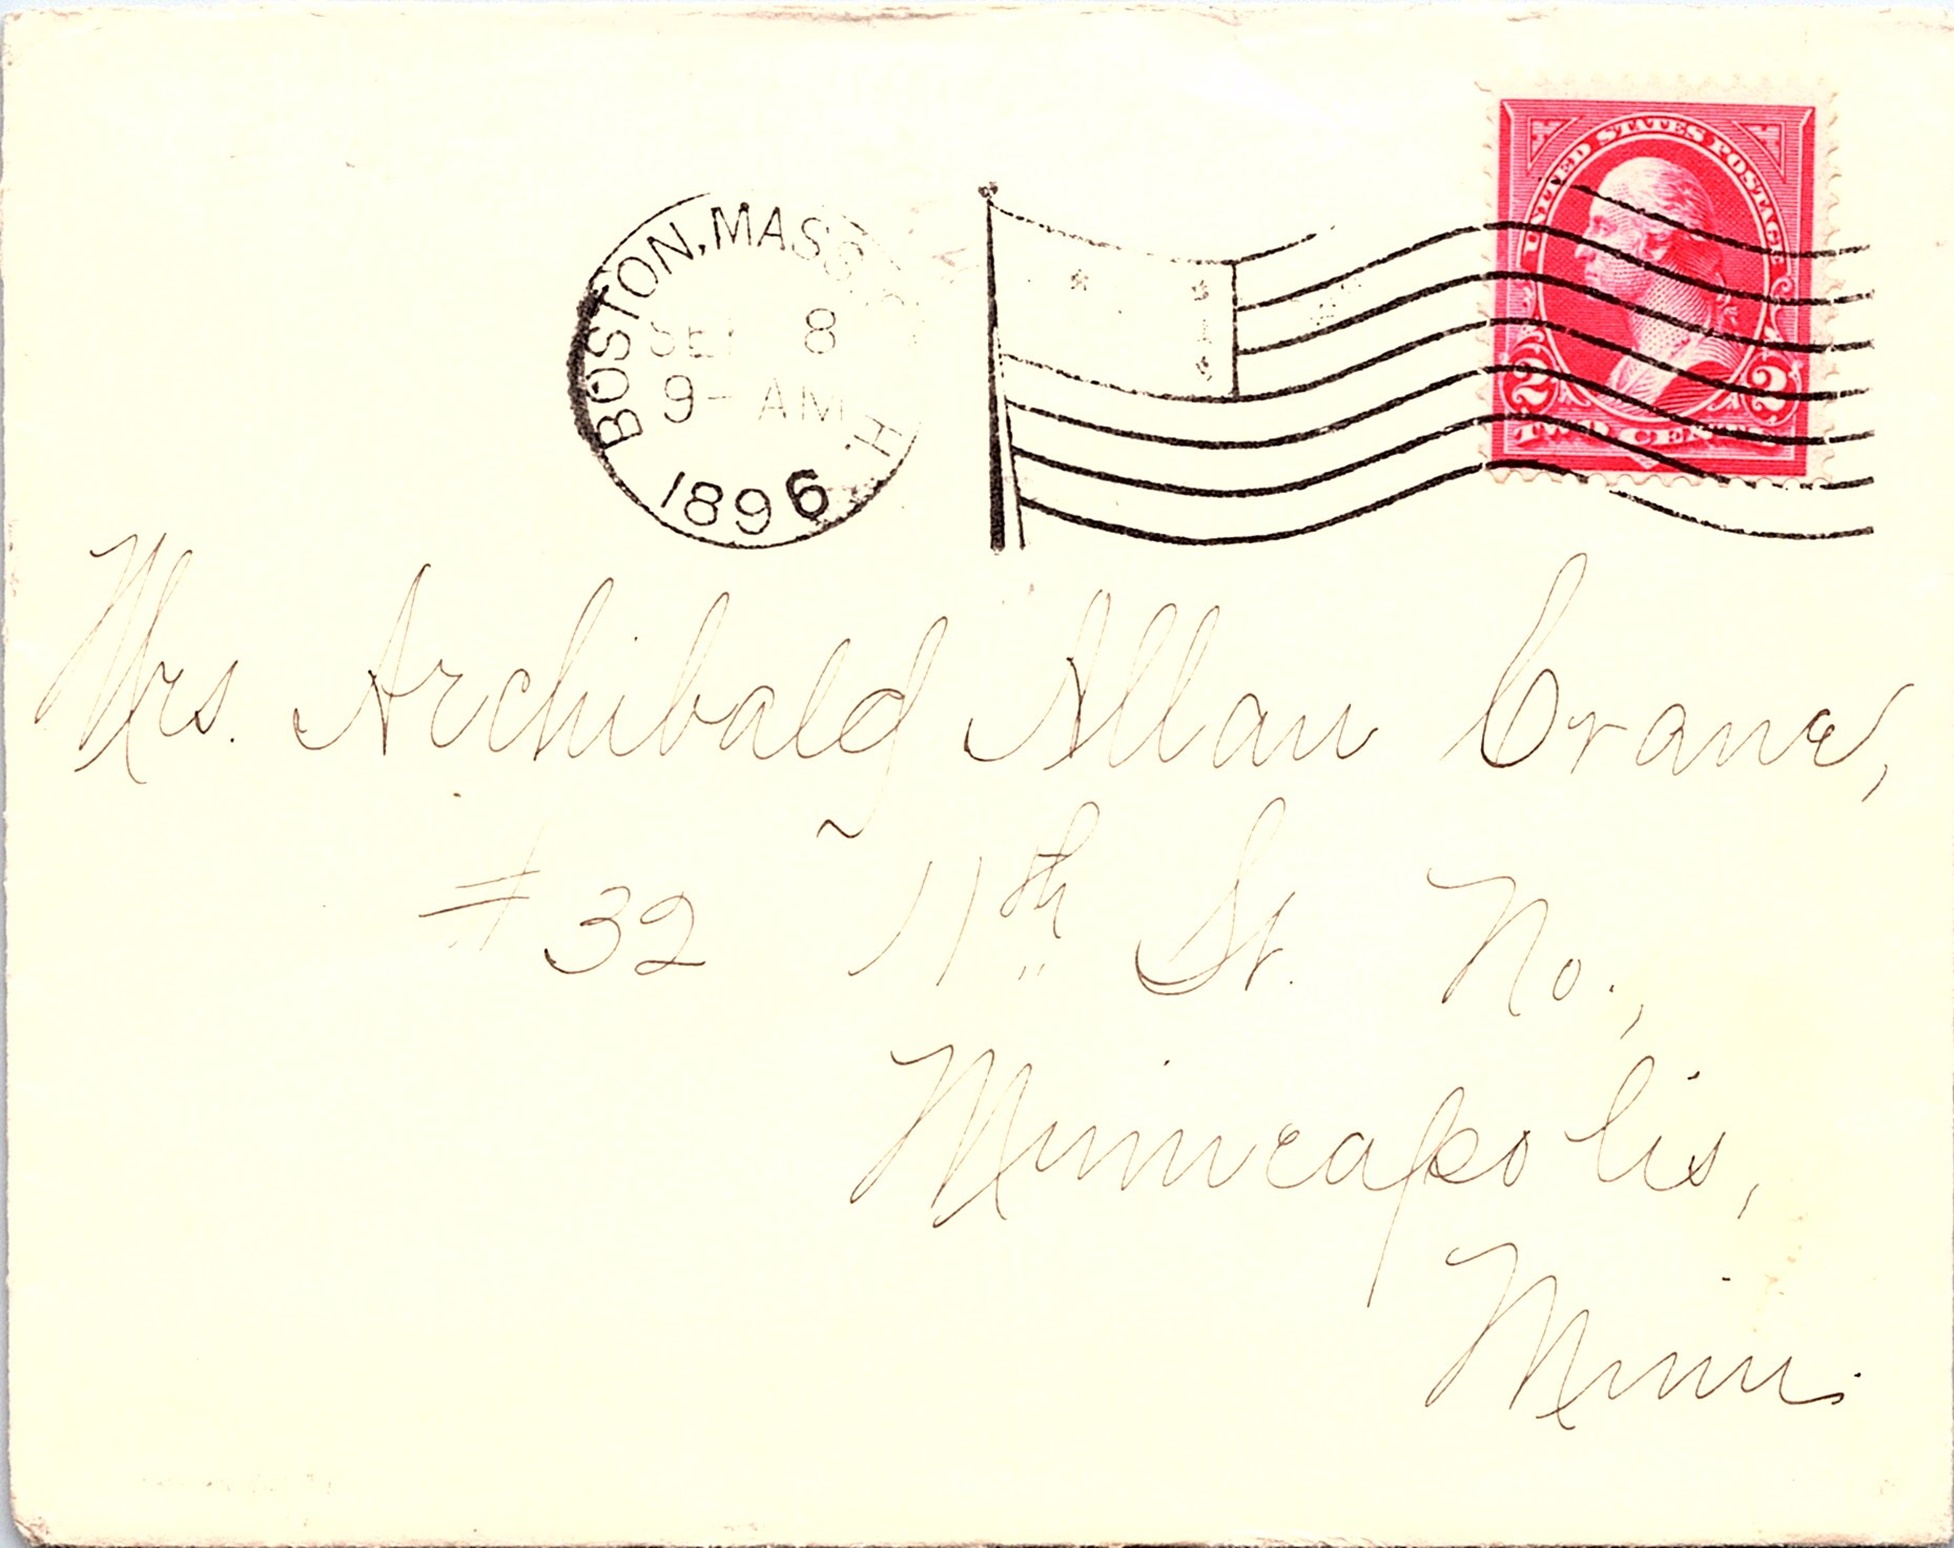 UNITED STATES POSTAGE
2 2
TWO CENTS
BOSTON, MASS.
SEP 8
9-AM
1896
Mrs. Archibald Allan Crane,
# 32 11th St. No.,
Minneapolis,
Minn.